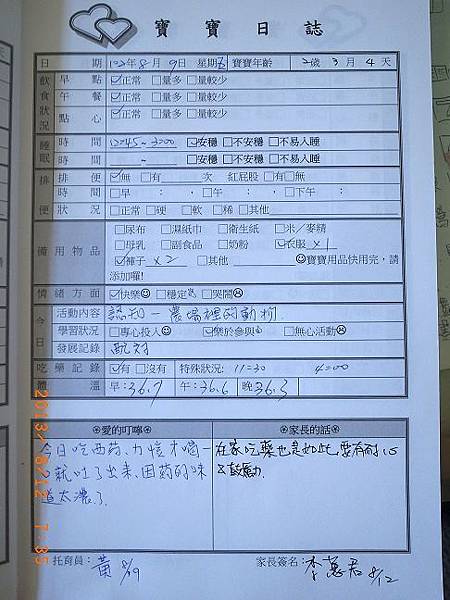 寶寶日誌
日期 102年8月9日 星期五 寶寶年齡 2歲3月4天
飲食狀況 早點 ☑正常 □量多 □量較少
午餐 ☑正常 □量多 □量較少
點心 ☑正常 □量多 □量較少
睡眠 時間 12:45~3:00 ☑安穩 □不安穩 □不易入睡
時間 ~ □安穩 □不安穩 □不易入睡
排便 排便 ☑無 □有 次 紅屁股 □有 □無
時間 □早 : ,□午 : ,□下午 :
狀況 □正常 □硬 □軟 □稀 □其他
備用物品 □尿布 □濕紙巾 □衛生紙 □米/麥精
□母乳 □副食品 □奶粉 ☑衣服 x1
☑褲子 x2 □其他 ☺寶寶用品快用完,請
添加囉!
情緒方面 ☑快樂☺ □穩定 □哭鬧☹
今日 活動內容 認知-農場裡的動物
學習狀況 □專心投入☺ ☑樂於參與 □無心活動☹
發展記錄
吃藥記錄 ☑有 □沒有 特殊狀況: 11:30 4:00
體溫 早:36.7 午:36.6 晚36.3
愛的叮嚀 家長的話
今日吃西药、
就吐了出來,因药的味
道太濃了
在家吃藥也是如此,要有耐心
鼓勵
托育員:黃 8/9 家長簽名:李蕙君 8/12
2013/8/12 7:35